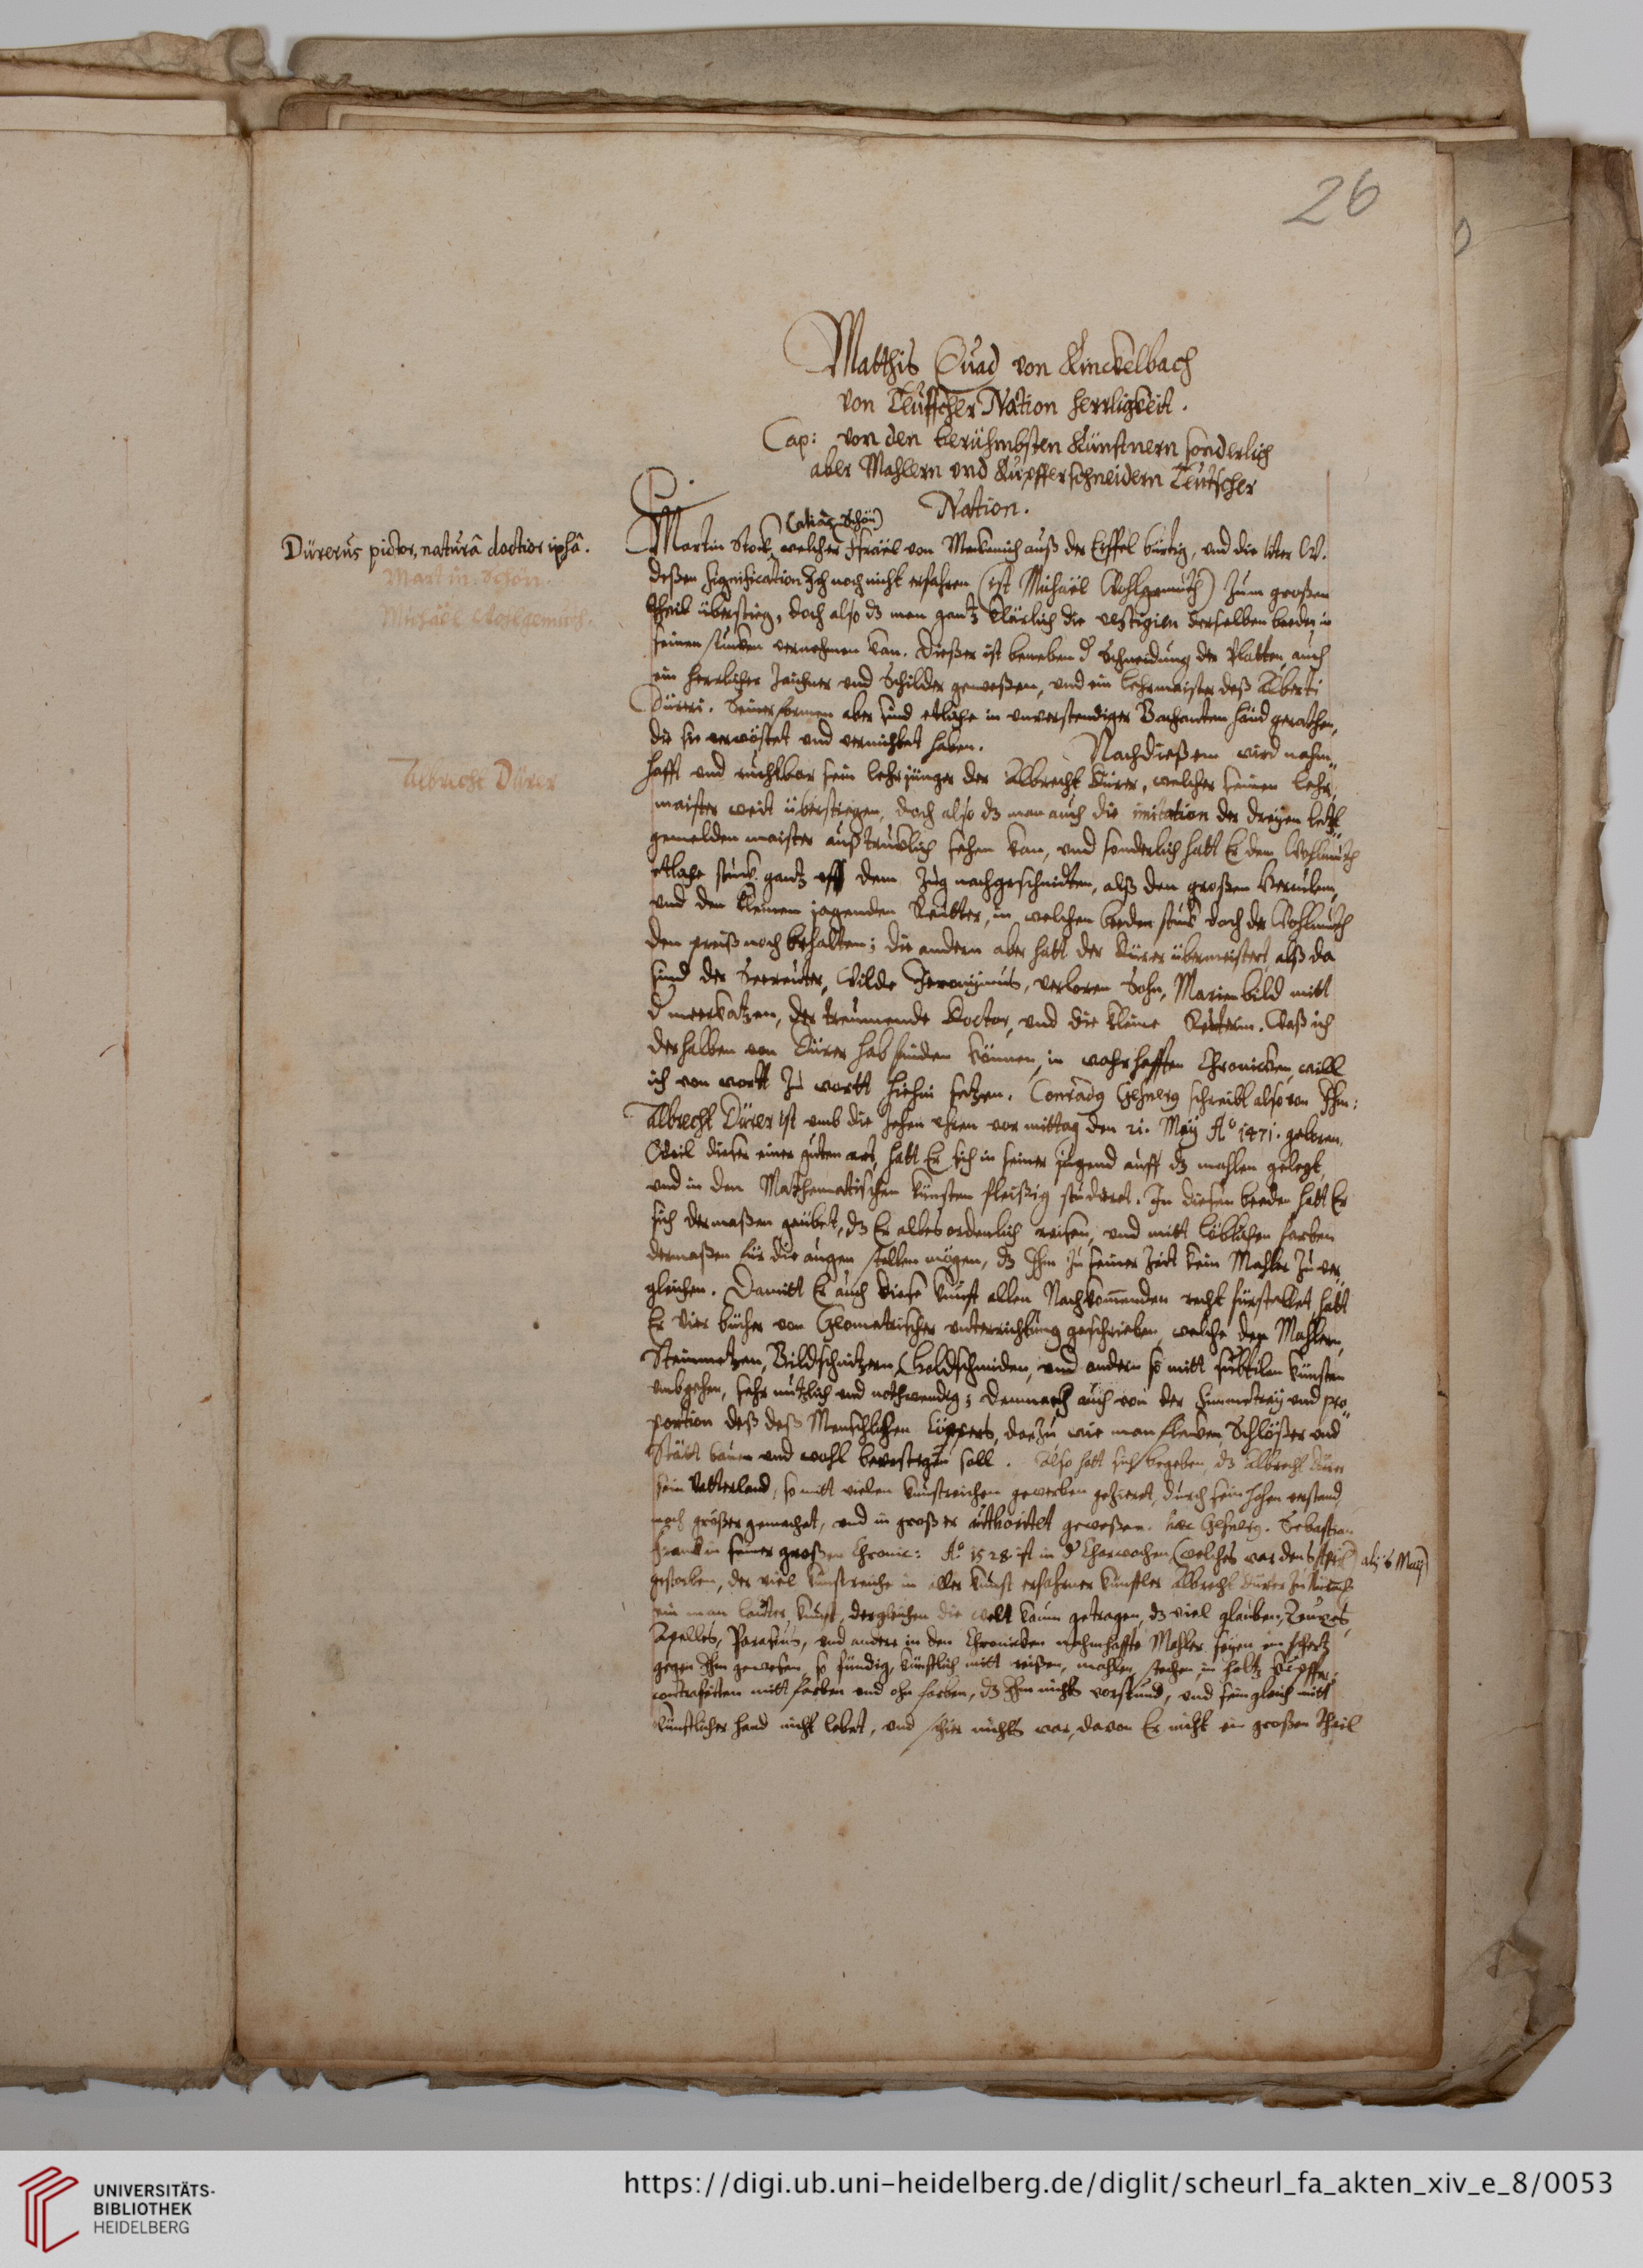 26
Matthis Quad von Kinckelbach
von Teutscher Nation Herrligkeit.
Cap: von den berühmbsten Künstnern sonderlich
aber Mahlern und Kupfferschneidern Teutscher
Nation.
Dürerus pictor, naturâ doctior ipsâ.
Martin Schön.
Michäel Wolgemuth.
Albrecht Dürer
(alias Schön)
Martin Stock, welcher Israël von Meckenich auß der Eyffel bürtig, und die liter W.
deßen signification Ich noch nicht erfahren (ist Michäel Wohlgemuth) zum großen
theil überstieg, doch also dz man gantz klärlich die vestigien derselben beeder in
seinen stucken vernehmen kan. Dießer ist beneben d' Schneidung der Platten, auch
ein herrlicher Zeichner und Schilder geweßen, und ein Lehrmeister deß Alberti
Düreri. Seiner formen aber sind etliche in unverstendiger Bachanten händ gerathen,
die sie verwüstet und vernichtet haben. Nach dießem wird nahm„
hafft und ruchtbar sein Lehrjünger der Albrecht Dürer, welcher seinen Lehr„
maister weit überstiegen, doch also dz man auch die imitation der dreyen letzt„
gemelden maister außtrucklich sehen kan, und sonderlich hatt Er dem Wohlmuth
etliche stuck gantz uff dem Zug nachgeschnidten, alß den großen Herculem,
und den kleinen jagenden Reutter, in welchen beeden stuck doch der Wohlmuth
den preiß noch behalten; die andern aber hatt der Dürer übermeistert, alß da
sind der Seereuter, Wilde Jeronymus, verloren Sohn, Marienbild mitt
d' meerkatzen, der treumende Doctor, und die kleine Reuterin. Waß ich
derhalben von Dürer hab finden können, in wahrhafften Chronicken, will
ich von wortt zu wortt hiehin setzen. Conradg Gesnerg schreibt also von Ihm:
Albrecht Dürer ist umb die Zehen Uhren vor mittag den 21. Mey Aº 1471. geboren.
Weil dieser einer guten art, hatt Er sich in seiner jugend auff dz mahlen gelegt,
und in den Mathematischen künsten fleißig studieret. In diesen beeden hatt Er
sich dermaßen geübet, dz Er alles ordenlich reisen, und mitt löblichen farben
dermaßen für die augen stellen mögen, dz Ihm zu seiner Zeit kein Mahler zu ver„
gleichen. Damitt Er auch diese kunst allen Nachkommenden recht fürstellet, hatt
Er vier bücher von Geometrischer unterrichtung geschrieben, welche den Mahlern,
Steinmetzen, Bildschnitzern, Goldschmiden, und andern so mitt subtilen künsten
umbgehen, sehr nützlich und nothwendig; demnach auch von der Simmetrey und pro„
portion deß deß Menschlichen Cörpers, darzu wie man flecken, Schlößer und
Stätt bauen und wohl bevestigen soll. Also hatt sichs begeben, dz Albrecht Dürer
sein Vatterland, so mitt vielen kunstreichen gewerben gezieret, durch sein hohen verstand
noch größer gemachet, und in großer authoritet geweßen. haec Gesnerg. Sebastian
Franck in seiner großen Chronic: Aº 1528 ist in d' Charwochen (welches war den 8 April) als 6 Maij
gestorben, der viel kunstreiche in aller kunst erfahrner künstler Albrecht Dürer zu Nürnb:
ein man lauter kunst, dergleichen die welt kaum getragen, dz viel glauben, Zeuxes,
Apelles, Parasius, und andere in den Chronicken nahmhaffte Mahler seyen ein schertz
gegen Ihm gewesen, so fündig, künstlich mitt reißen, mahlen, stechen, in holtz, kupffer
contrafeiten mitt farben und ohn farben, dz Ihm nichts vorstund, und sein gleich mitt
künstlicher hand nicht lebet, und schier nichts war, davon Er nicht ein großen theil
UNIVERSITÄTS-
BIBLIOTHEK
HEIDELBERG
https://digi.ub.uni-heidelberg.de/diglit/scheurl_fa_akten_xiv_e_8/0053